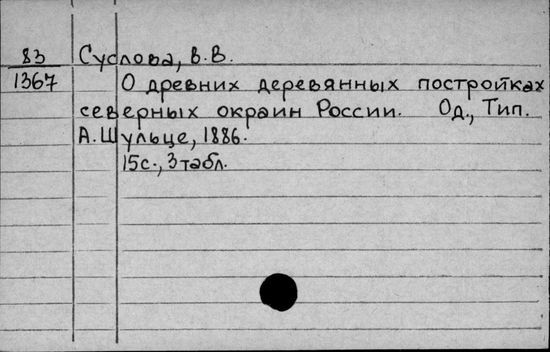 83 Суслова, В.В.
1367 О древних деревянных постройках
северных окраин России. Од., Тип.
А. Шульце, 1886.
15с., 3 табл.